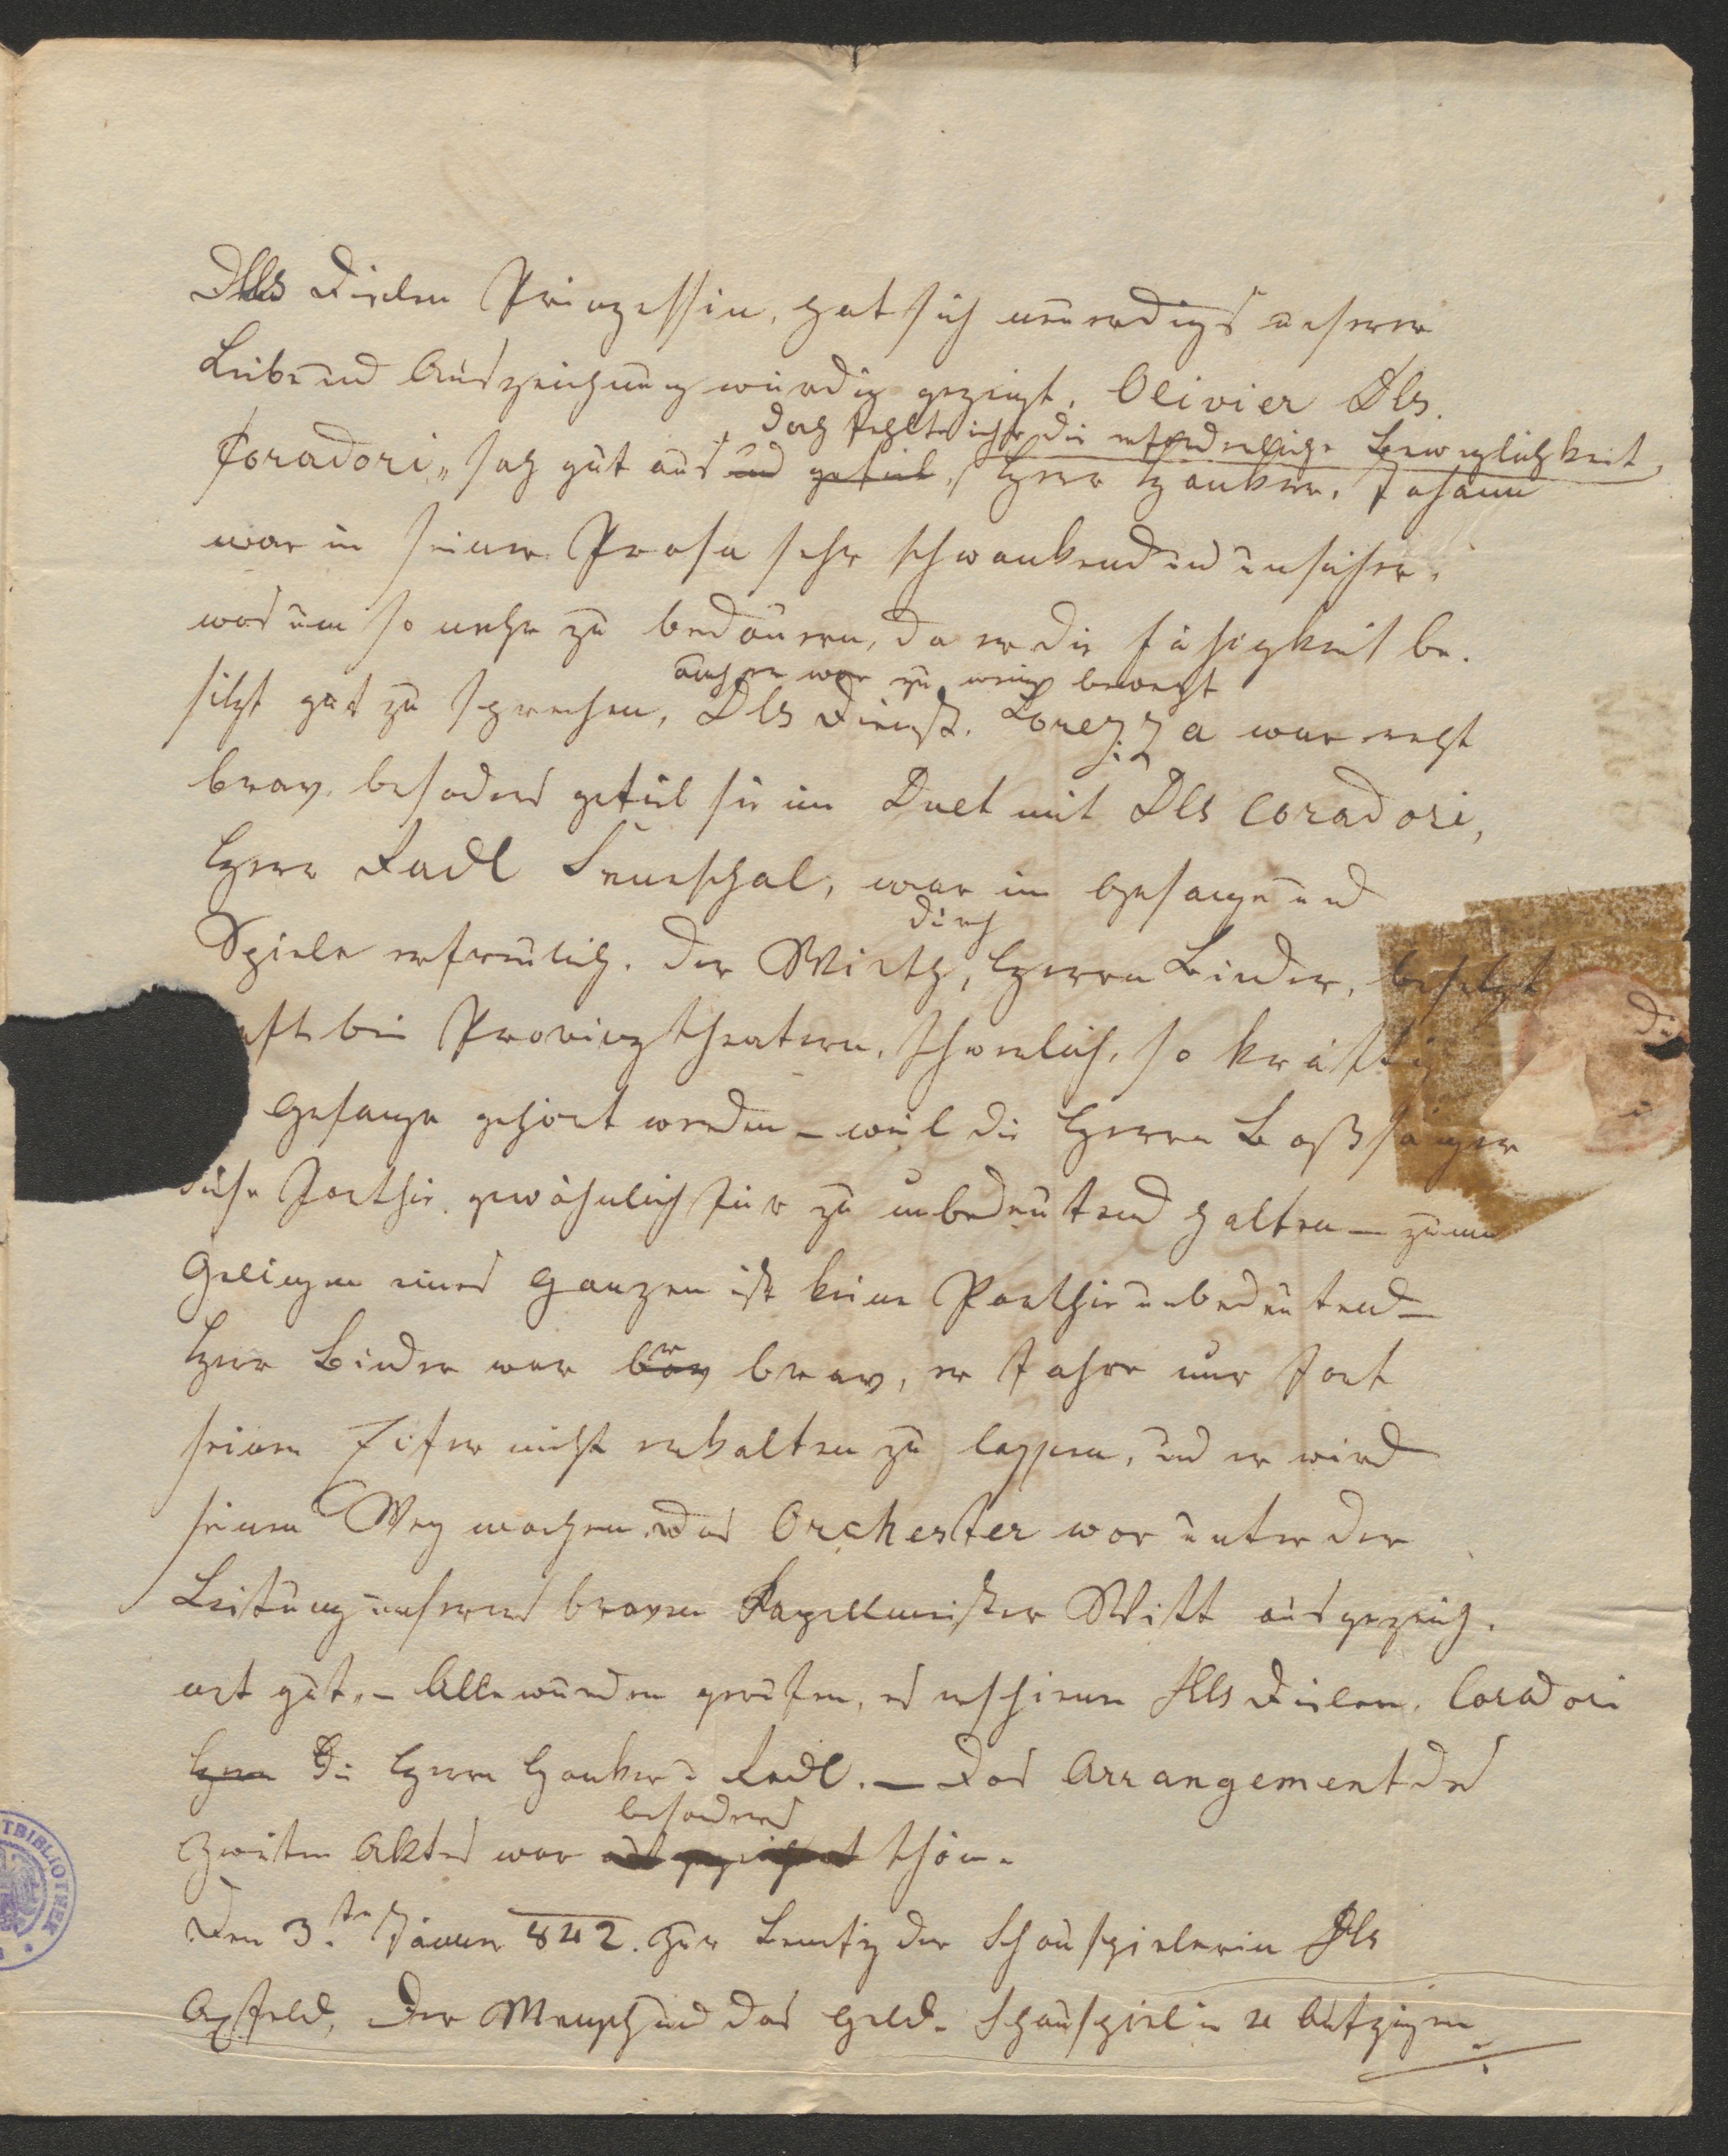 Dlls Dielen Prinzessin, hat sich neuerdings unserer
Liebe und Auszeichnung würdig gezeigt. Olivier Dls.
doch fehlte ihr die erforderliche Beweglichkeit,
Coradori, sah gut aus und gefiel, Herr Hanker, Johann
war in seiner Prosa sehr schwankend und unsicher,
was um so mehr zu bedauern, da er die Fähigkeit be-
auch er war zu wenig bewegt
sitzt gut zu sprechen, Dls Dienst. Lorezza war recht
brav, besonders gefiel sie im Duet mit Dls Coradori,
Herr Radl Seneschal, war im Gesange und
durch
Spiele erfreulich. Der Wirth, Herrn Binder, besetzt
bei Provinztheatern, schwerlich, so kräftig
Gesange gehört werden – weil die Herren Baßsänger
Parthie gewöhnlich für zu unbedeutend halten – zum
Gelingen eines Ganzen ist keine Parthie unbedeutend –
Herr Binder war brav brav, er fahre nur fort
seinen Eifer nicht erkalten zu lassen, und er wird
seinen Weg machen. Das Orchester war unter der
Leitung unseres braven Kapellmeister Witt ausgezeich-
net gut. – Alle wurden gerufen, es erschienen Dlls Dielen, Coradori
Herrn Die Herrn Hanker u Radl. – Das Arrangement des
besonders
zweiten Aktes war ausgezeichnet schön.
Den 3.ten Jänner 842. Zur Benefiz der Schauspielerin Dls
Apfeld, Der Mensch und das Geld. Schauspiel in Aufzügen